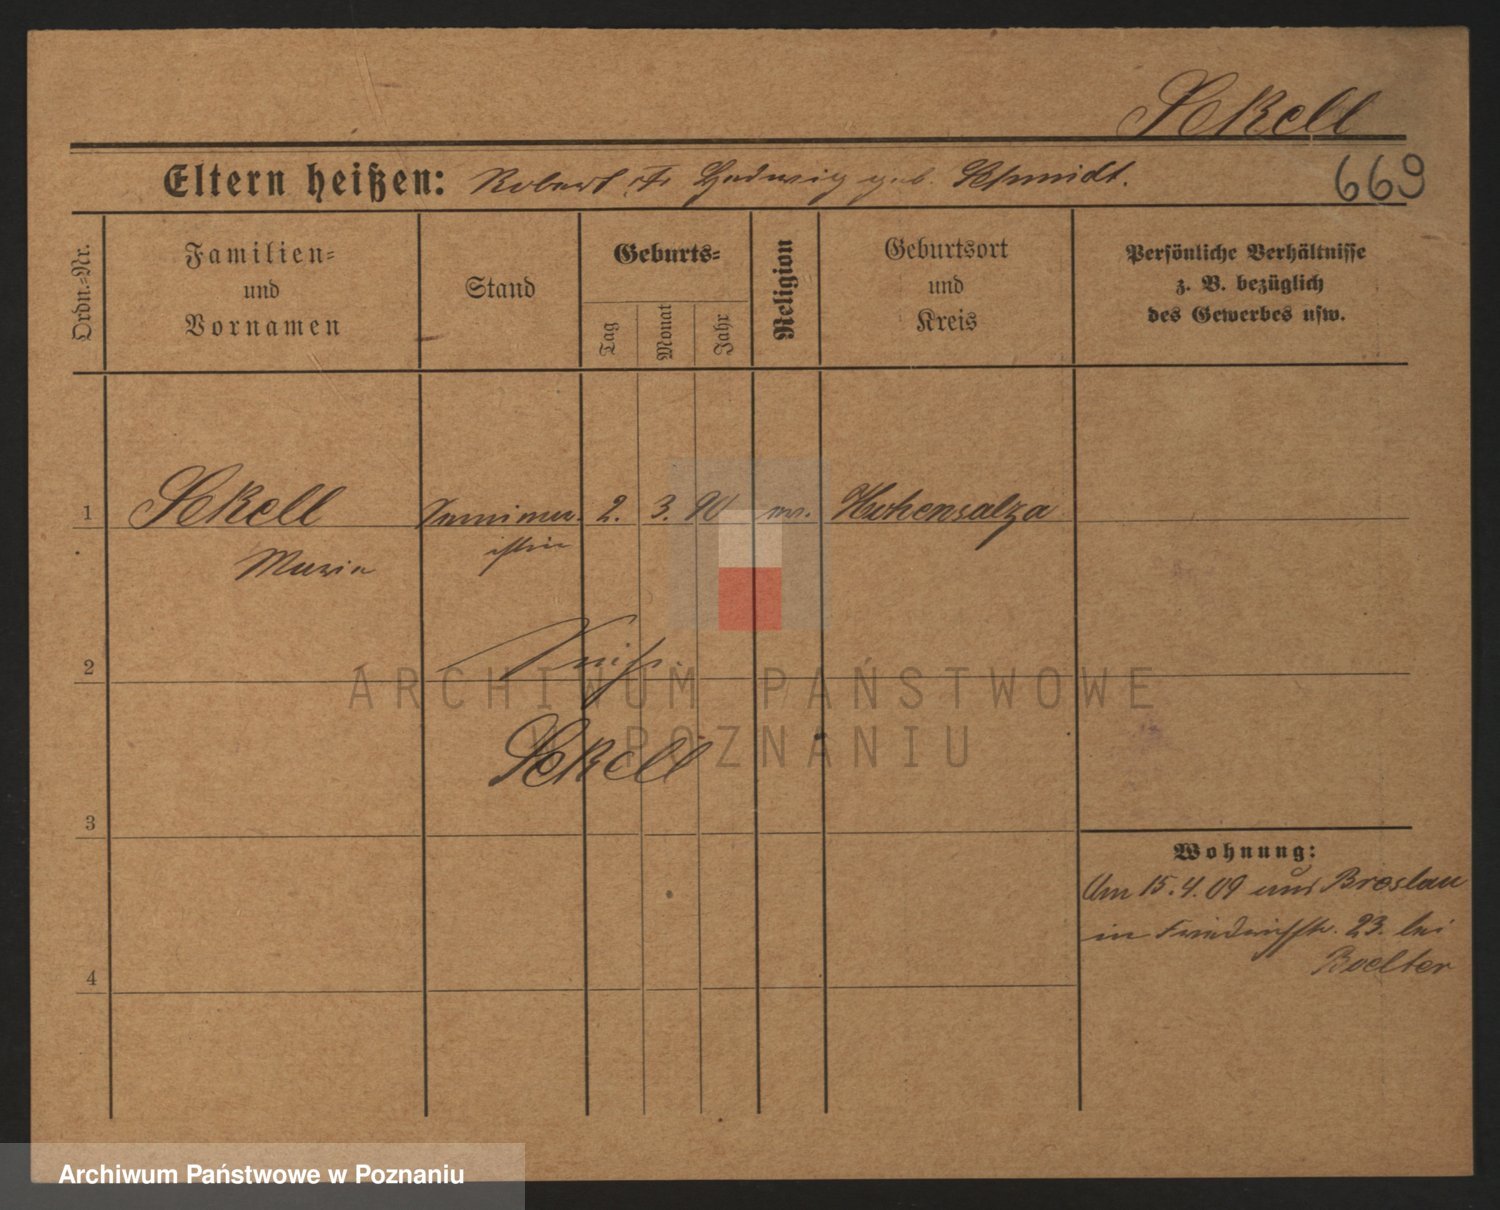 Sekell
Eltern heißen: Robert Hedwig geb. Schmidt.
669
Ordn.-Nr.
Familien-
und
Vornamen
Stand
Geburts-
Tag
Monat
Jahr
Religion
Geburtsort
und
Kreis
Persönliche Verhältnisse
z. B. bezüglich
des Gewerbes usw.
1 Sekell 2. 3. 90 Hohensalza
Maria
2
Sekell
3
Wohnung:
Am 15.4.09 aus Breslau
in Friedrichstr. 23. bei
Boelter
4
ARCHIWUM PAŃSTWOWE
W POZNANIU
Archiwum Państwowe w Poznaniu